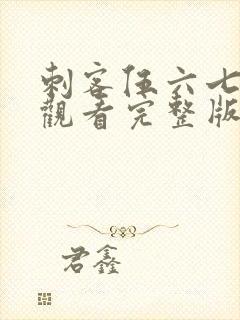 刺客伍六七
觀看完整版
君鑫